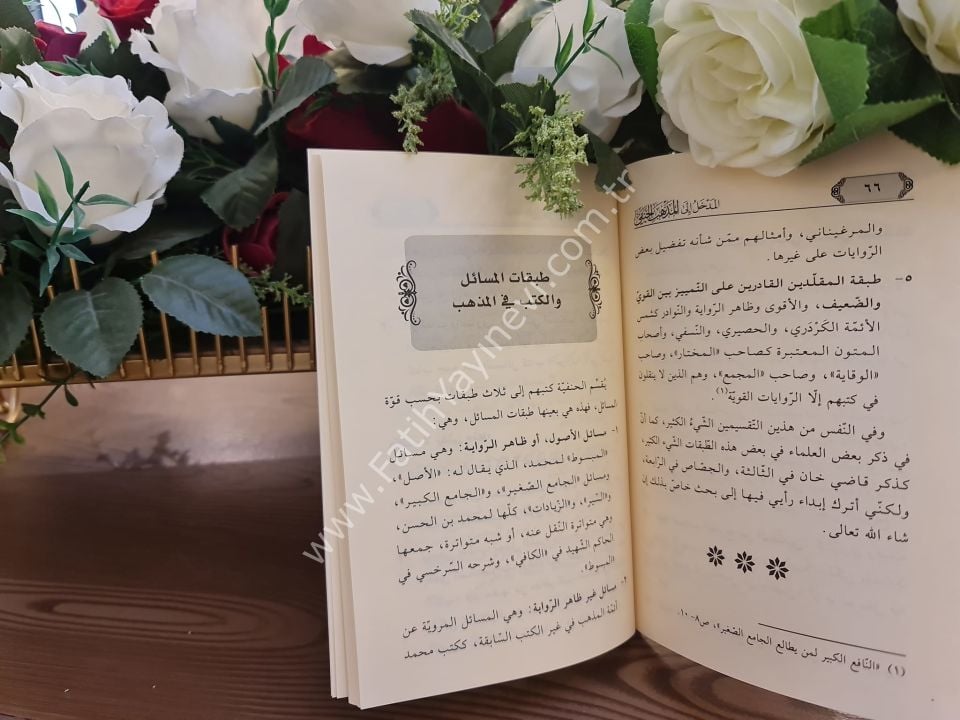 ٦٦
المَدْخَلُ إِلَى المَذْهَبِ الحَنَفِيِّ
والمرغيناني، وأمثالهم ممّن شأنه تفضيل بعض
الرّوايات على غيرها.
٥- طبقة المقلّدين القادرين على التّمييز بين القويّ
والضّعيف، والأقوى وظاهر الرّواية والنّوادر كشمس
الأئمّة الكَرْدَري، والحصيري، والنّسفي، وأصحاب
المتون المعتبرة كصاحب «المختار»، وصاحب
«الوقاية»، وصاحب «المجمع»، وهم الذين لا ينقلون
في كتبهم إلّا الرّوايات القويّة(١).
وفي النّفس من هذين التّقسيمين الشّيءُ الكثير، كما أنّ
في ذكر بعض العلماء في بعض هذه الطّبقات الشّيء الكثير،
كذكر قاضي خان في الثّالثة، والجصاص في الرّابعة،
ولكنّي أترك إبداء رأيي فيها إلى بحث خاصّ بذلك إن
شاء الله تعالى.
(١) «النّافع الكبير لمن يطالع الجامع الصّغير»، ص٨-١٠.
طبقات المسائل
والكتب في المذهب
يُقسِّم الحنفيّة كتبهم إلى ثلاث طبقات بحسب قوّة
المسائل، فهذه هي بعينها طبقات المسائل، وهي:
١- مسائل الأصول، أو ظاهر الرّواية: وهي مسائل
«المبسوط» لمحمد، الذي يقال له: «الأصل»،
ومسائل «الجامع الصّغير»، و«الجامع الكبير»،
و«السّير»، و«الزّيادات»، كلّها لمحمد بن الحسن،
وهي متواترة النّقل عنه، أو شبه متواترة، جمعها
الحاكم الشّهيد في «الكافي»، وشرحه السّرخسي في
«المبسوط».
٢- مسائل غير ظاهر الرّواية: وهي المسائل المرويّة عن
أئمّة المذهب في غير الكتب السّابقة، ككتب محمد
www.FatihYayinevi.com.tr